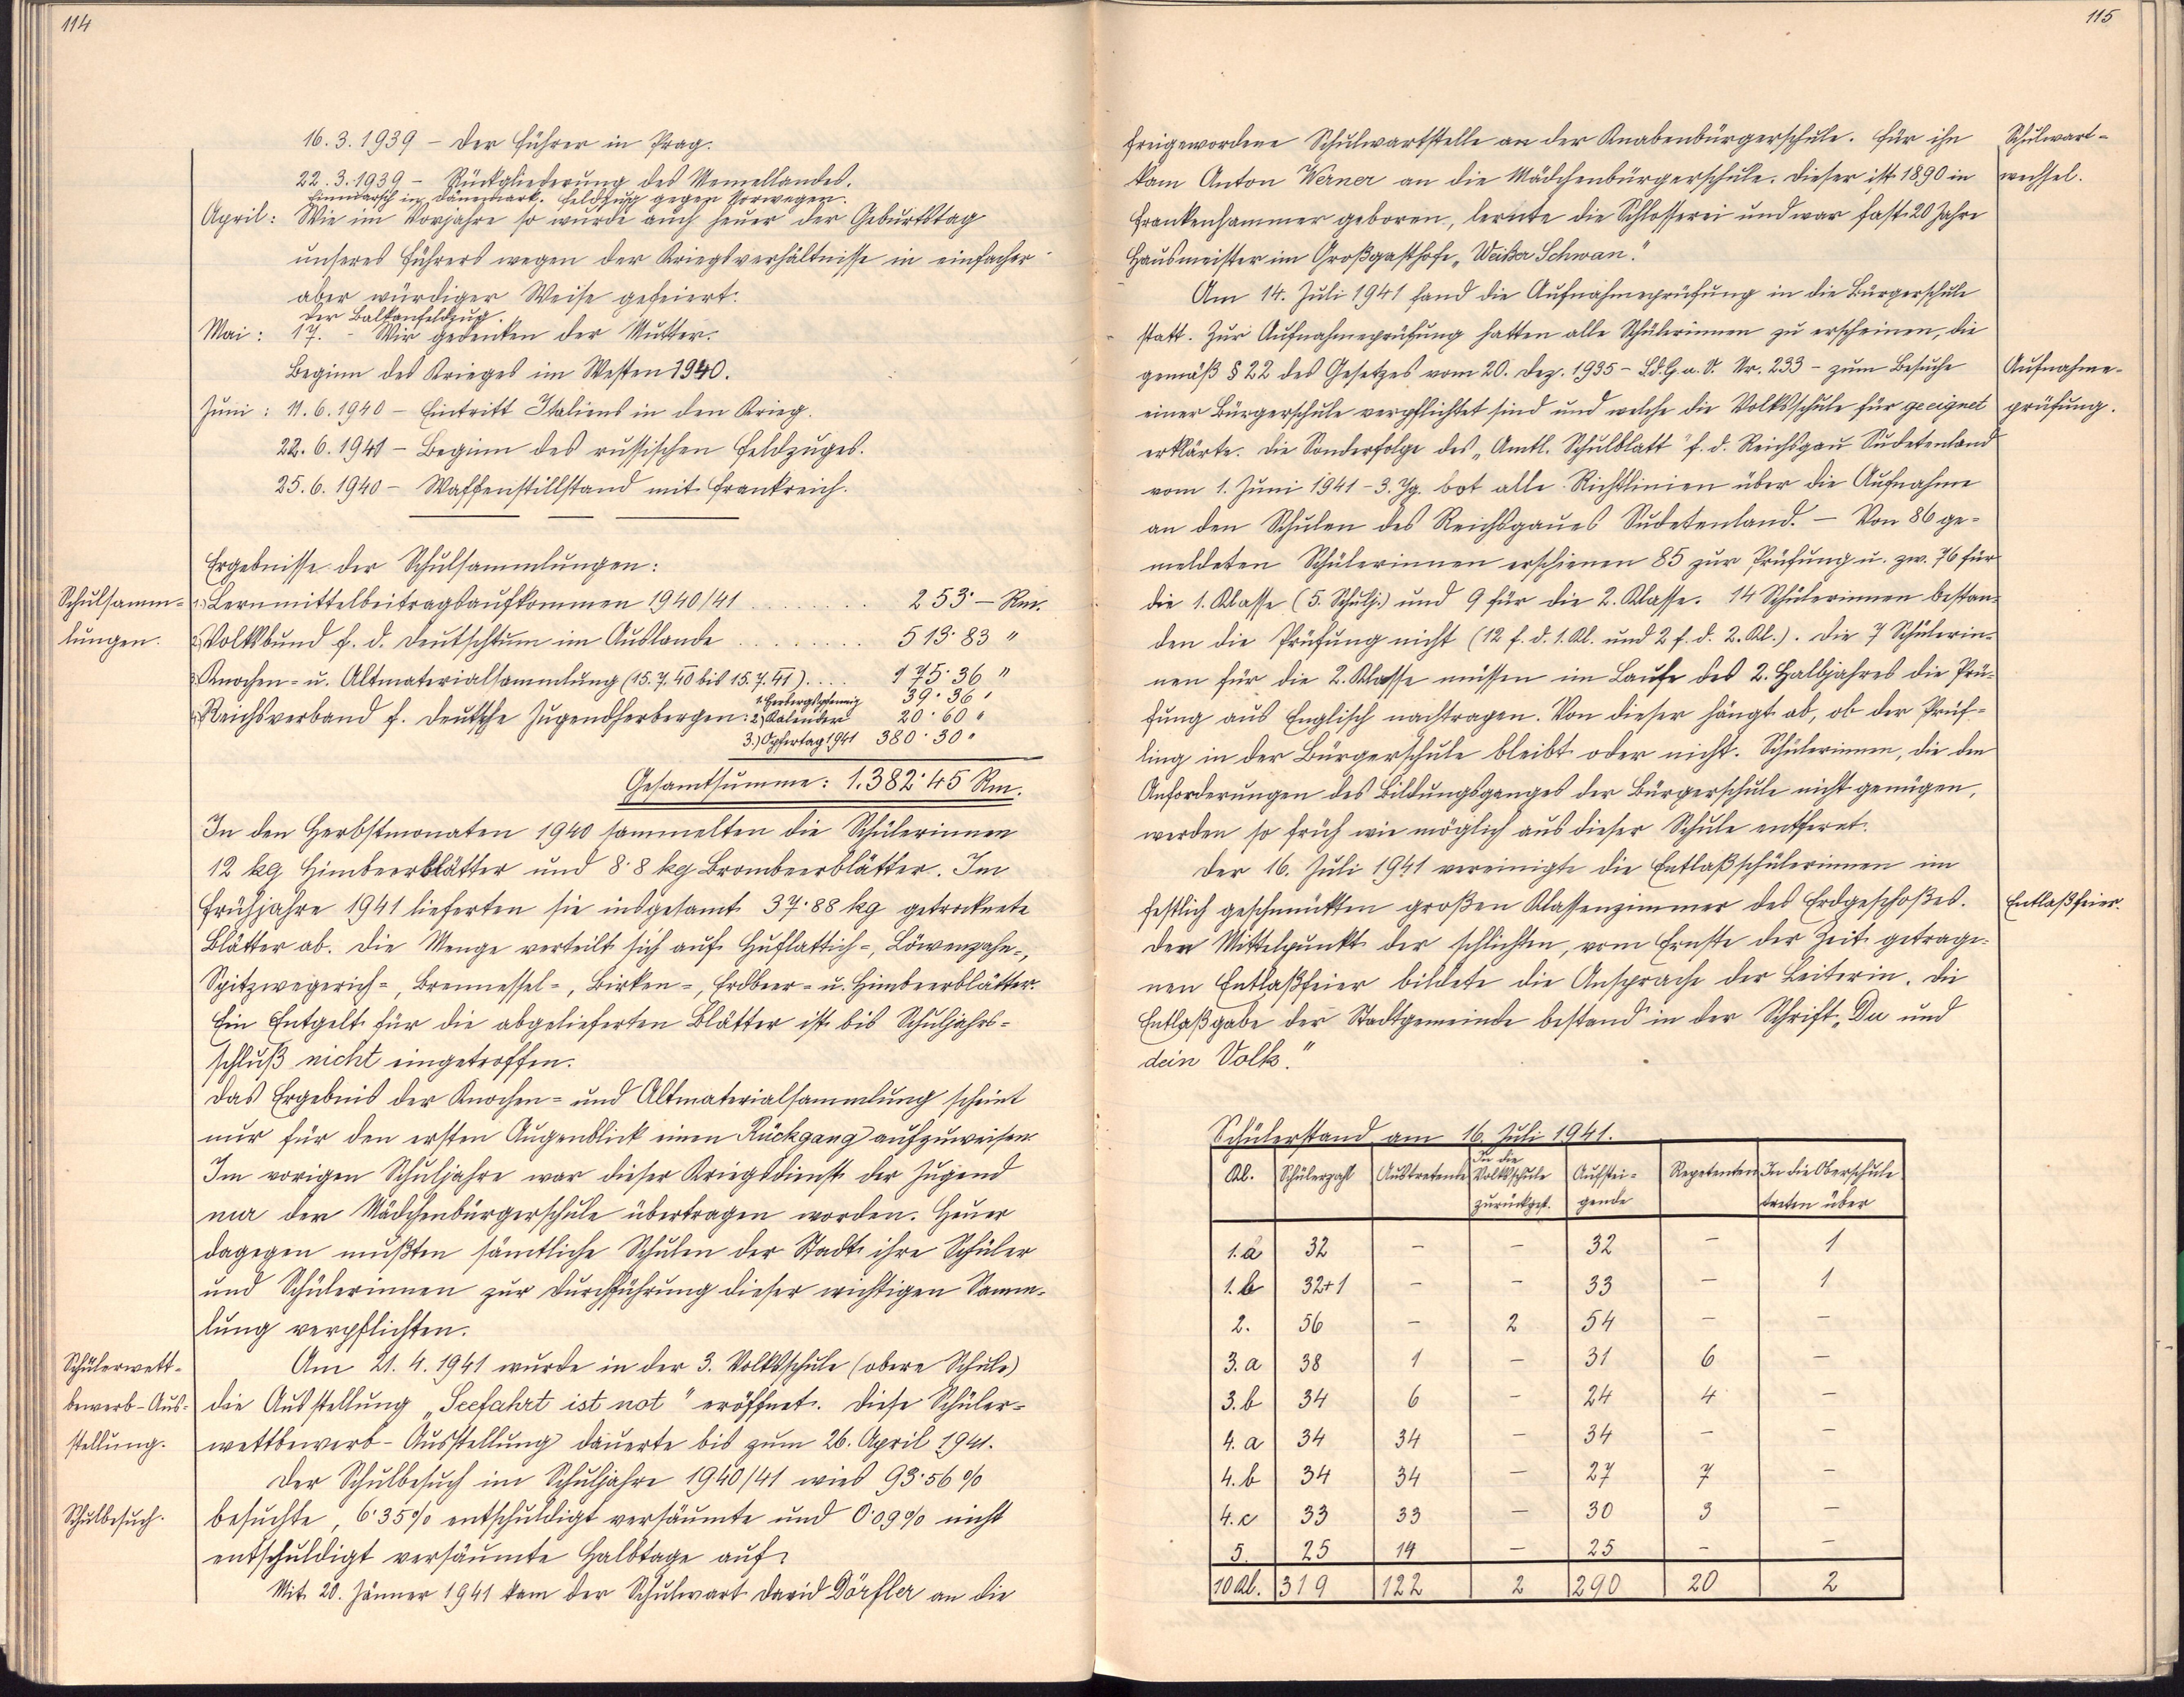 114
16.3.1939 – Der Führer in Prag.
22.3.1939 – Rückgliederung des Memellandes.
Einmarsch in Dänemark. Feldzug gegen Norwegen.
April: Wie im Vorjahre so wurde auch heuer der Geburtstag
unseres Führers wegen der Kriegsverhältnisse in einfacher
aber würdiger Weise gefeiert.
Der Balkanfeldzug.
Mai: 17. - Wir gedenken der Mutter.
Beginn des Krieges im Westen 1940.
Juni: 11.6.1940 – Eintritt Italiens in den Krieg.
22.6.1941 – Beginn des russischen Feldzuges.
25.6.1940 – Waffenstillstand mit Frankreich.
Ergebnisse der Schulsammlungen:
Schulsamm-
lungen.
1.) Lernmittelbeitragsaufkommen 1940/41 ........ 253·— Rm.
2.) Volksbund f. d. Deutschtum im Auslande ........ 513·83 "
3.) Knochen- u. Altmaterialsammlung (15.7.40 bis 15.7.41) .... 175·36 "
1. Herbergspfennig 39·36 "
4.) Reichsverband f. Deutsche Jugendherbergen: 2.) Kalender 20·60 "
3.) Opfertag 1941 380·30 "
Gesamtsumme: 1.382·45 Rm.
In den Herbstmonaten 1940 sammelten die Schülerinnen
12 kg Himbeerblätter und 8·8 kg Brombeerblätter. Im
Frühjahre 1941 lieferten sie insgesamt 37·88 kg getrocknete
Blätter ab. Die Menge verteilt sich auf Huflattich-, Löwenzahn-,
Spitzwegerich-, Brennessel-, Birken-, Erdbeer- u. Himbeerblätter.
Ein Entgelt für die abgelieferten Blätter ist bis Schuljahrs-
schluß nicht eingetroffen.
Das Ergebnis der Knochen- und Altmaterialsammlung scheint
nur für den ersten Augenblick einen Rückgang aufzuweisen.
Im vorigen Schuljahre war dieser Kriegsdienst der Jugend
nur der Mädchenbürgerschule übertragen worden. Heuer
dagegen mußten sämtliche Schulen der Stadt ihre Schüler
und Schülerinnen zur Durchführung dieser wichtigen Samm-
lung verpflichten.
Schülerwett-
bewerb-Aus-
stellung.
Am 21.4.1941 wurde in der 3. Volksschule (obere Schule)
die Ausstellung „Seefahrt ist not" eröffnet. Diese Schüler-
wettbewerb-Ausstellung dauerte bis zum 26. April 1941.
Der Schulbesuch im Schuljahre 1940/41 wies 93·56%
Schulbesuch.
besuchte, 6·35% entschuldigt versäumte und 0·09% nicht
entschuldigt versäumte Halbtage auf.
Mit 20. Jänner 1941 kam der Schulwart David Dörfler an die
115
freigewordene Schulwartstelle an der Knabenbürgerschule. Für ihn
Schulwart-
wechsel.
kam Anton Werner an die Mädchenbürgerschule. Dieser ist 1890 in
Frankenhammer geboren, lernte die Schlosserei und war fast 20 Jahre
Hausmeister im Großgasthofe „Weißer Schwan."
Am 14. Juli 1941 fand die Aufnahmeprüfung in die Bürgerschule
statt. Zur Aufnahmeprüfung hatten alle Schülerinnen zu erscheinen, die
gemäß § 22 des Gesetzes vom 20. Dez. 1935 – S.d.G.u.V. Nr. 233 – zum Besuche
Aufnahme-
prüfung.
einer Bürgerschule verpflichtet sind und welche die Volksschule für geeignet
erklärte. Die Sonderfolge des „Amtl. Schulblatt" f. d. Reichsgau Sudetenland
vom 1. Juni 1941 – 3. Jg. bot alle Richtlinien über die Aufnahme
an den Schulen des Reichsgaues Sudetenland. – Von 86 ge-
meldeten Schülerinnen erschienen 85 zur Prüfung u. zw. 76 für
die 1. Klasse (5. Schulj.) und 9 für die 2. Klasse. 14 Schülerinnen bestan-
den die Prüfung nicht (12 f. d. 1. Kl. und 2 f. d. 2. Kl.). Die 7 Schülerin-
nen für die 2. Klasse müssen im Laufe des 2. Halbjahres die Prü-
fung aus Englisch nachtragen. Von dieser hängt ab, ob der Prüf-
ling in der Bürgerschule bleibt oder nicht. Schülerinnen, die den
Anforderungen des Bildungsganges der Bürgerschule nicht genügen,
werden so früh wie möglich aus dieser Schule entfernt.
Der 16. Juli 1941 vereinigte die Entlaßschülerinnen im
festlich geschmückten großen Klassenzimmer des Erdgeschoßes.
Entlaßfeier.
Den Mittelpunkt der schlichten, vom Ernste der Zeit getrage-
nen Entlaßfeier bildete die Ansprache der Leiterin. Die
Entlaßgabe der Stadtgemeinde bestand in der Schrift „Du und
dein Volk."
Schülerstand am 16. Juli 1941.
Kl. Schülerzahl Austretende In die Volksschule zurückgest. Aufstei-gende Repetenten In die Oberschule treten über
1.a 32 – – 32 – 1
1.b 32+1 – – 33 – 1
2. 56 – 2 54 – –
3.a 38 1 – 31 6 –
3.b 34 6 – 24 4 –
4.a 34 34 – 34 – –
4.b 34 34 – 27 7 –
4.c 33 33 – 30 3 –
5. 25 14 – 25 – –
10 Kl. 319 122 2 290 20 2